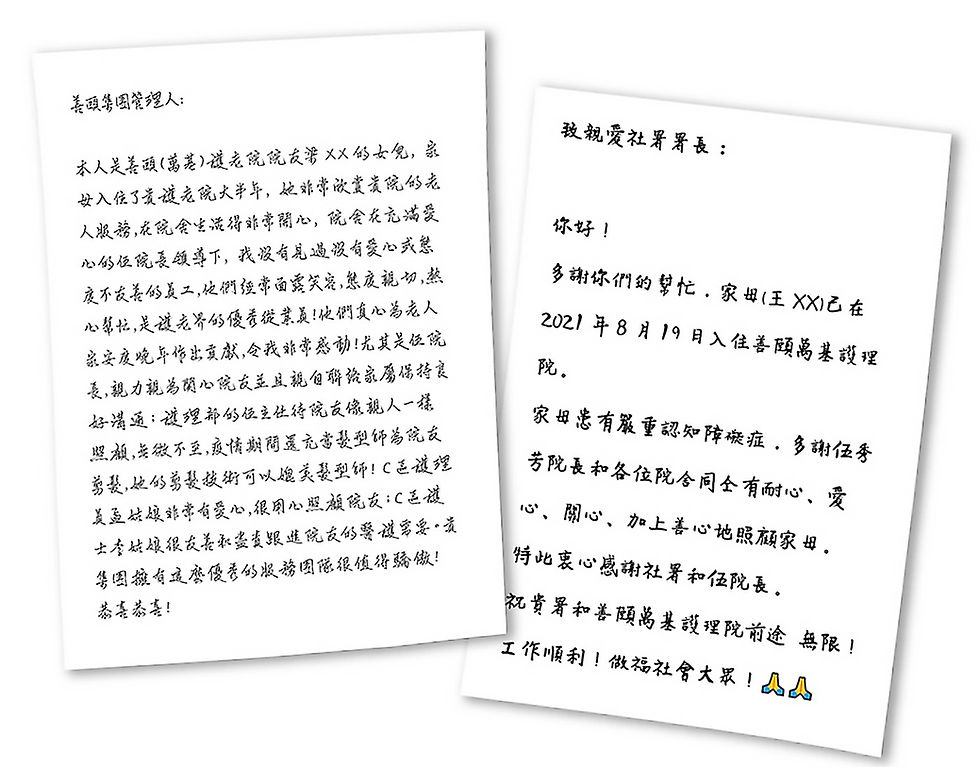 善頤集團管理人:
本人是善頤(萬基)護老院院友梁XX的女兒，家
母入住了貴護老院大半年，她非常欣賞貴院的老
人服務,在院舍生活得非常開心，院舍在充滿愛
心的伍院長領導下，我沒有見過沒有愛心或態
度不友善的員工,他們經常面露笑容,態度親切,熱
心幫忙,是護老界的優秀從業員!他們真心為老人
家安度晚年作出貢獻,令我非常感動!尤其是伍院
長,親力親為關心院友並且親自聯絡家屬保持良
好溝通：護理部的伍主任待院友像親人一樣
照顧,無微不至,疫情期間還充當髮型師為院友
剪髮,她的剪髮技術可以媲美髮型師! C區護理
員孟姑娘非常有愛心,很用心照顧院友：C區護
士李姑娘很友善和盡責跟進院友的醫護需要。貴
集團擁有這麼優秀的服務團隊很值得驕傲!
恭喜恭喜!
致親愛社署署長：
你好！
多謝你們的幫忙．家母(王 XX)已在
2021 年 8 月 19 日入住善頤萬基護理
院。
家母患有嚴重認知障礙症．多謝伍秀
芳院長和各位院舍同仝有耐心、愛
心、關心、加上善心地照顧家母．
特此衷心感謝社署和伍院長。
祝貴署和善頤萬基護理院前途 無限！
工作順利！做福社會大眾！🙏🙏